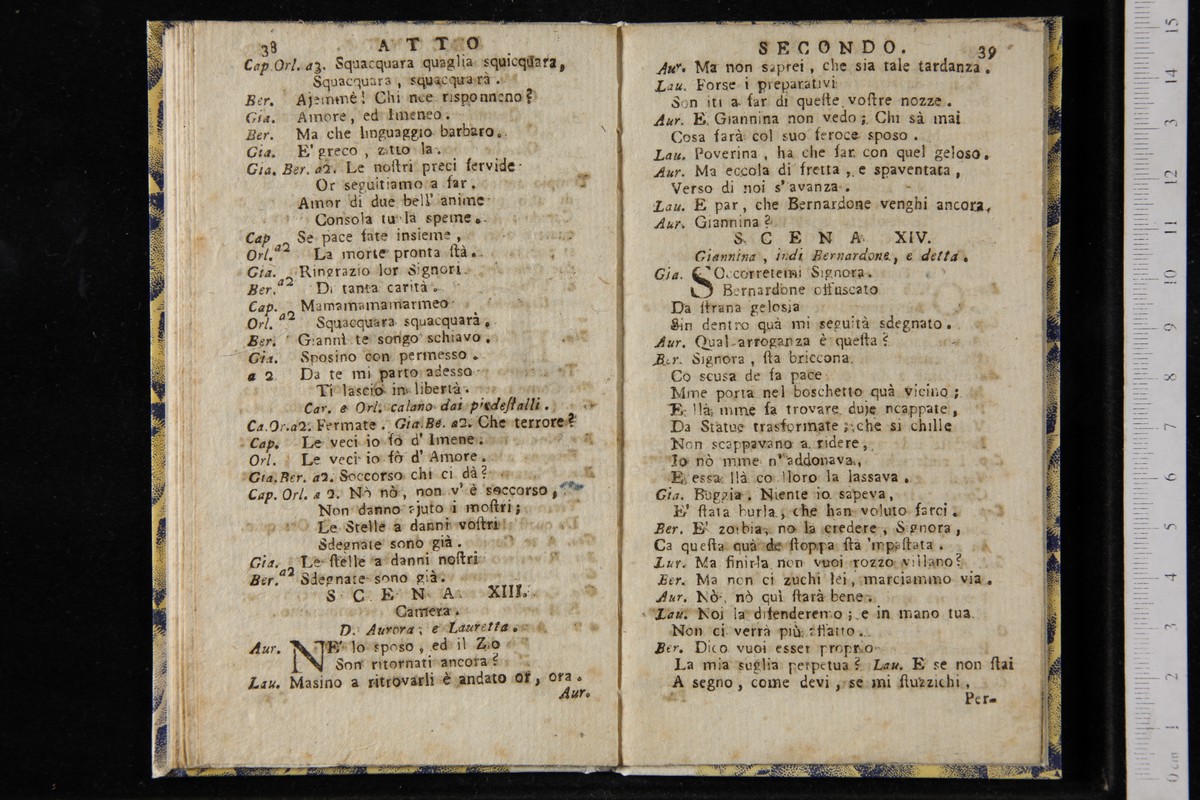 38 ATTO
Cap. Orl. a3. Squacquara quaglia squicquara,
Squacquara, squacquara.
Ber. Ajemmè! Chi nce risponneno?
Gia. Amore, ed Imeneo.
Ber. Ma che linguaggio barbaro.
Gia. E' greco, zitto la.
Gia. Ber. a2. Le noſtri preci fervide
Or seguitiamo a far.
Amor di due bell' anime
Consola tu la speme.
Cap. Se pace fate insieme,
Orl. a2 La morte pronta ſtà.
Gia. Ringrazio lor Signori
Ber. a2 Di tanta carità.
Cap. Mamamamamarmeo
Orl. a2 Squacquara squacquarà.
Ber. Gianni te songo schiavo.
Gia. Sposino con permesso.
a 2 Da te mi parto adesso
Ti lascio in libertà.
Car. e Orl. calano dai piedeſtalli.
Ca. Or. a2. Fermate. Gia. Be. a2. Che terrore?
Cap. Le veci io fò d' Imene.
Orl. Le veci io fò d' Amore.
Gia. Ber. a2. Soccorso chi ci dà?
Cap. Orl. a 2. Nò nò, non v' è soccorso,
Non danno ajuto i moſtri;
Le Stelle a danni voſtri
Sdegnate sono già.
Gia. Le ſtelle a danni noſtri
Ber. a2 Sdegnate sono già.
SCENA XIII.
Camera.
D. Aurora, e Lauretta.
Aur. NE' lo sposo, ed il Zio
Son ritornati ancora?
Lau. Masino a ritrovarli è andato or, ora.
Aur.
SECONDO. 39
Aur. Ma non saprei, che sia tale tardanza.
Lau. Forse i preparativi
Son iti a far di queſte voſtre nozze.
Aur. E Giannina non vedo; Chi sà mai
Cosa farà col suo feroce sposo.
Lau. Poverina, ha che far con quel geloso.
Aur. Ma eccola di fretta, e spaventata,
Verso di noi s' avanza.
Lau. E par, che Bernardone venghi ancora.
Aur. Giannina?
SCENA XIV.
Giannina, indi Bernardone, e detta.
Gia. SOccorretemi Signora.
Bernardone offuscato
Da ſtrana gelosia
Sin dentro quà mi seguità sdegnato.
Aur. Qual arroganza è queſta?
Ber. Signora, ſta briccona
Co scusa de fa pace
Mme porta nel boschetto quà vicino;
E llà mme fa trovare duje ncappate,
Da Statue trasformate; che si chille
Non scappavano a ridere,
Io nò mme n' addonava,
E essa llà co lloro la lassava.
Gia. Buggia. Niente io sapeva,
E' ſtata burla, che han voluto farci.
Ber. E' zoibia, no la credere, Signora,
Ca queſta quà de ſtoppa ſta 'mpaſtata.
Lur. Ma finirla non vuoi rozzo villano?
Ber. Ma non ci zuchi lei, marciammo via.
Aur. Nò, nò quì ſtarà bene.
Lau. Noi la difenderemo; e in mano tua
Non ci verrà più affatto.
Ber. Dico vuoi esser proprio
La mia suglia perpetua? Lau. E se non ſtai
A segno, come devi, se mi ſtuzzichi,
Per-
0 cm 1 2 3 4 5 6 7 8 9 10 11 12 13 14 15